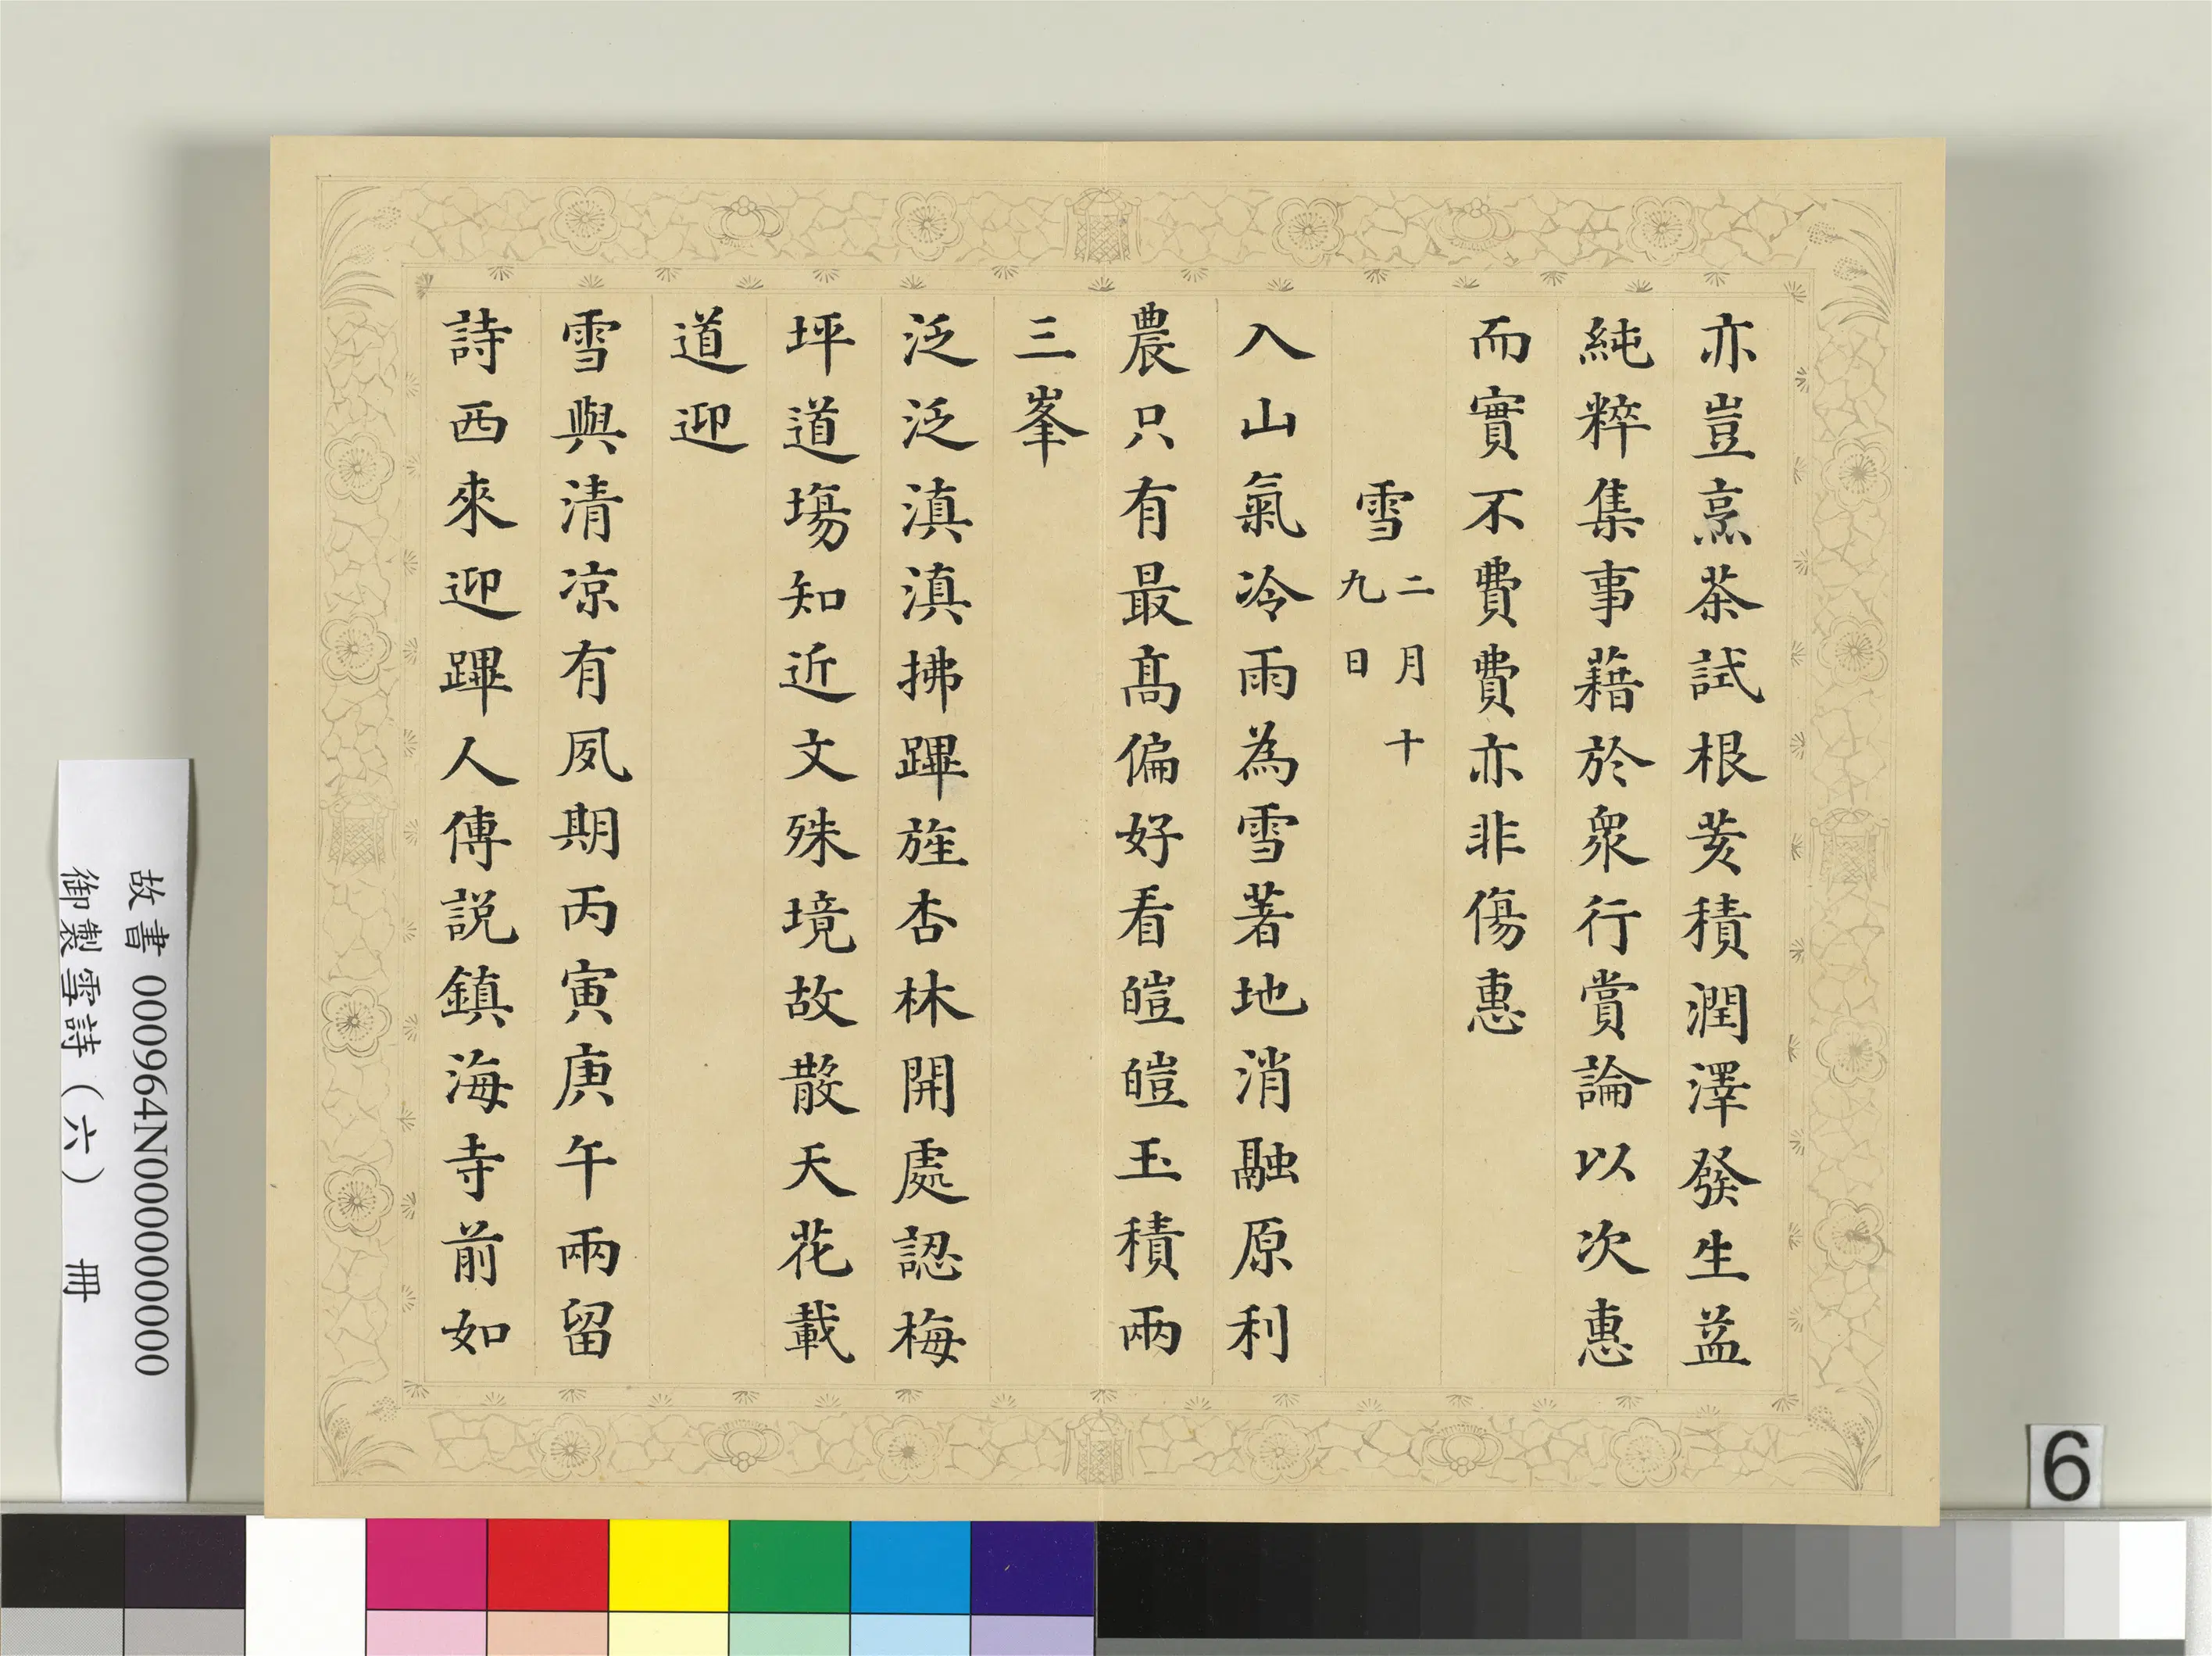 亦豈烹茶試根荄積潤澤發生益
純粹集事藉於衆行賞論以次惠
而實不費費亦非傷惠
雪二月十九日
入山氣冷雨為雪著地消融原利
農只有最髙偏好看皚皚玉積兩
三峯
泛泛滇滇拂蹕旌杏林開處認梅
坪道塲知近文殊境故散天花載
道迎
雪與清凉有夙期丙寅庚午兩留
詩西來迎蹕人傳說鎮海寺前如
故書 000964N000000000
御製雪詩（六） 冊
6